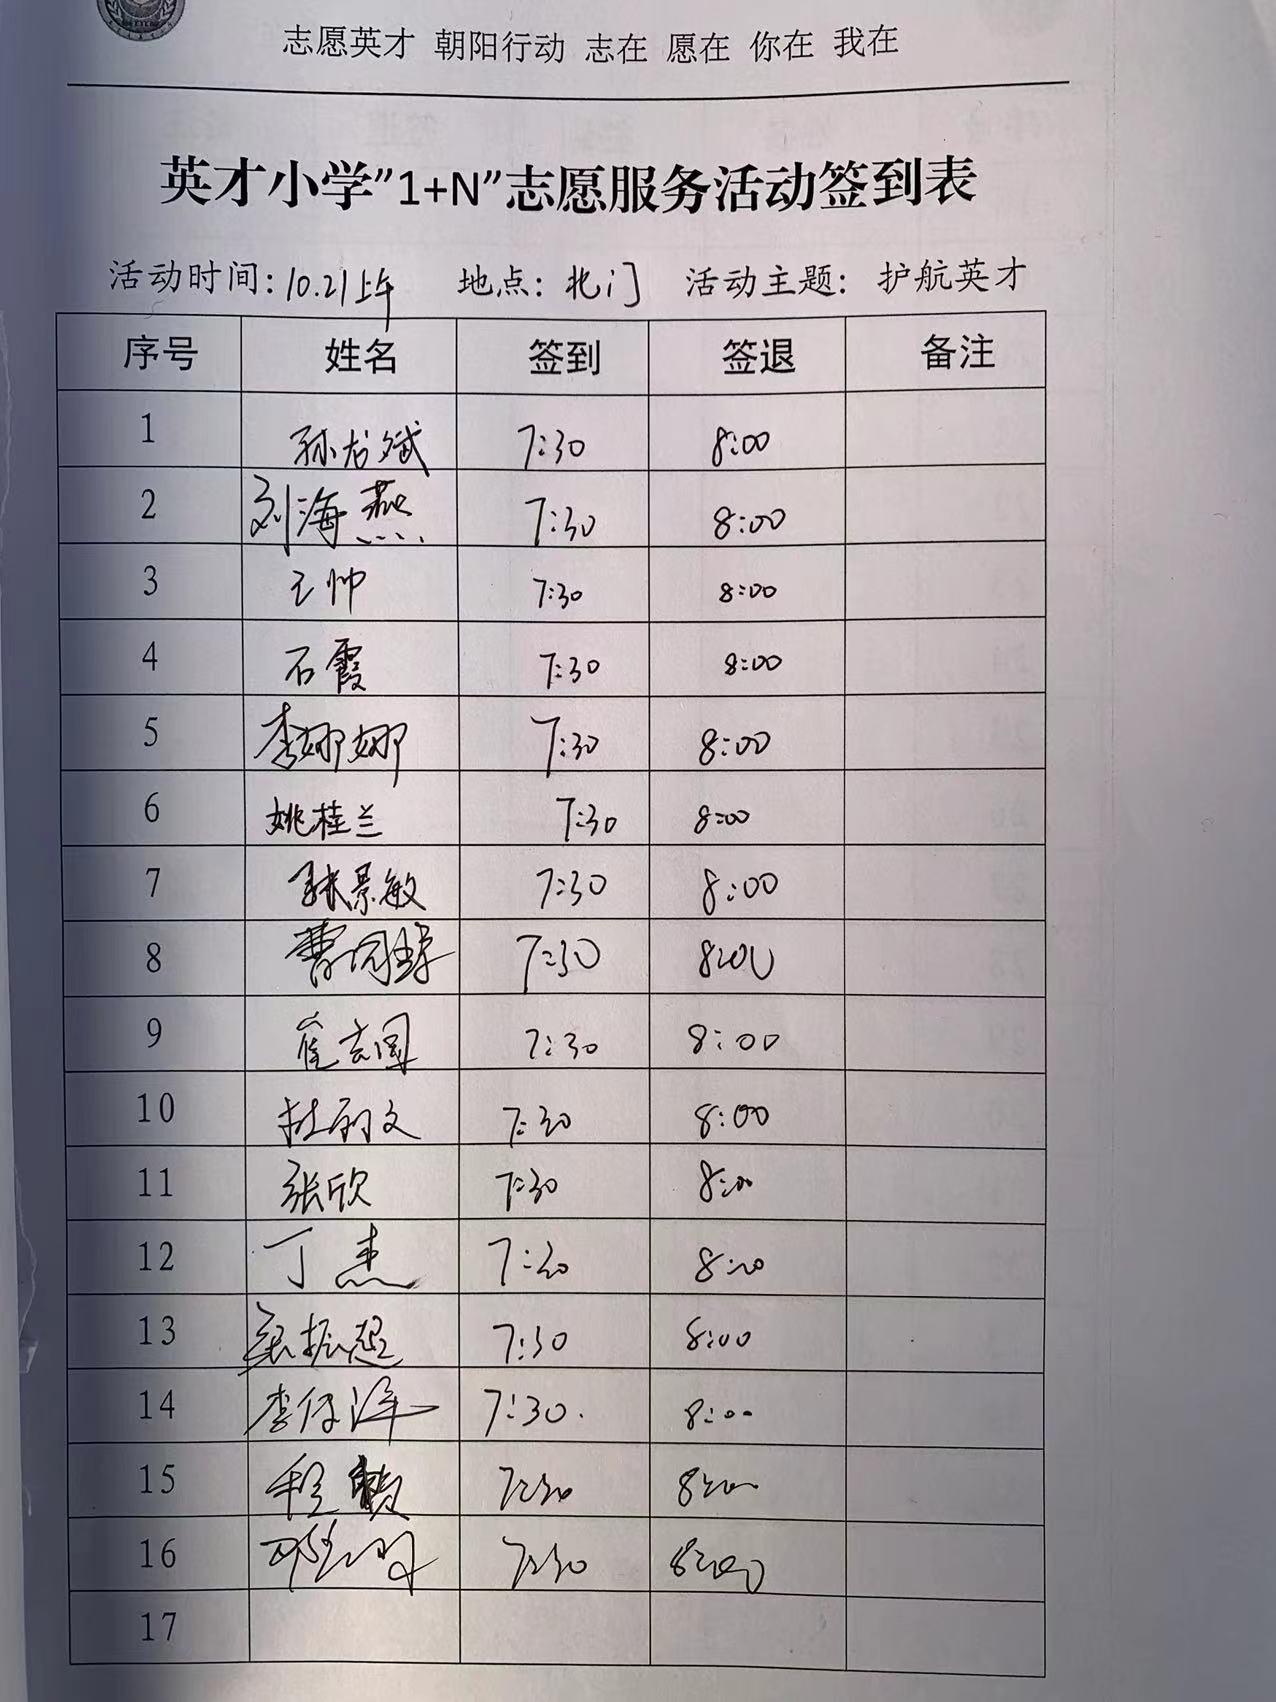 志愿英才 朝阳行动 志在 愿在 你在 我在
英才小学”1+N”志愿服务活动签到表
活动时间:10.21上午 地点:北门 活动主题:护航英才
序号 姓名 签到 签退 备注
1 孙龙斌 7:30 8:00
2 刘海燕 7:30 8:00
3 王帅 7:30 8:00
4 石霞 7:30 8:00
5 李娜娜 7:30 8:00
6 姚桂兰 7:30 8:00
7 张景敏 7:30 8:00
8 曹 7:30 8:00
9 崔 国 7:30 8:00
10 杜 文 7:30 8:00
11 张欣 7:30 8:00
12 丁杰 7:30 8:00
13 振超 7:30 8:00
14 李 7:30. 8:00
15 程 7:30 8:00
16 7:30 8:00
17